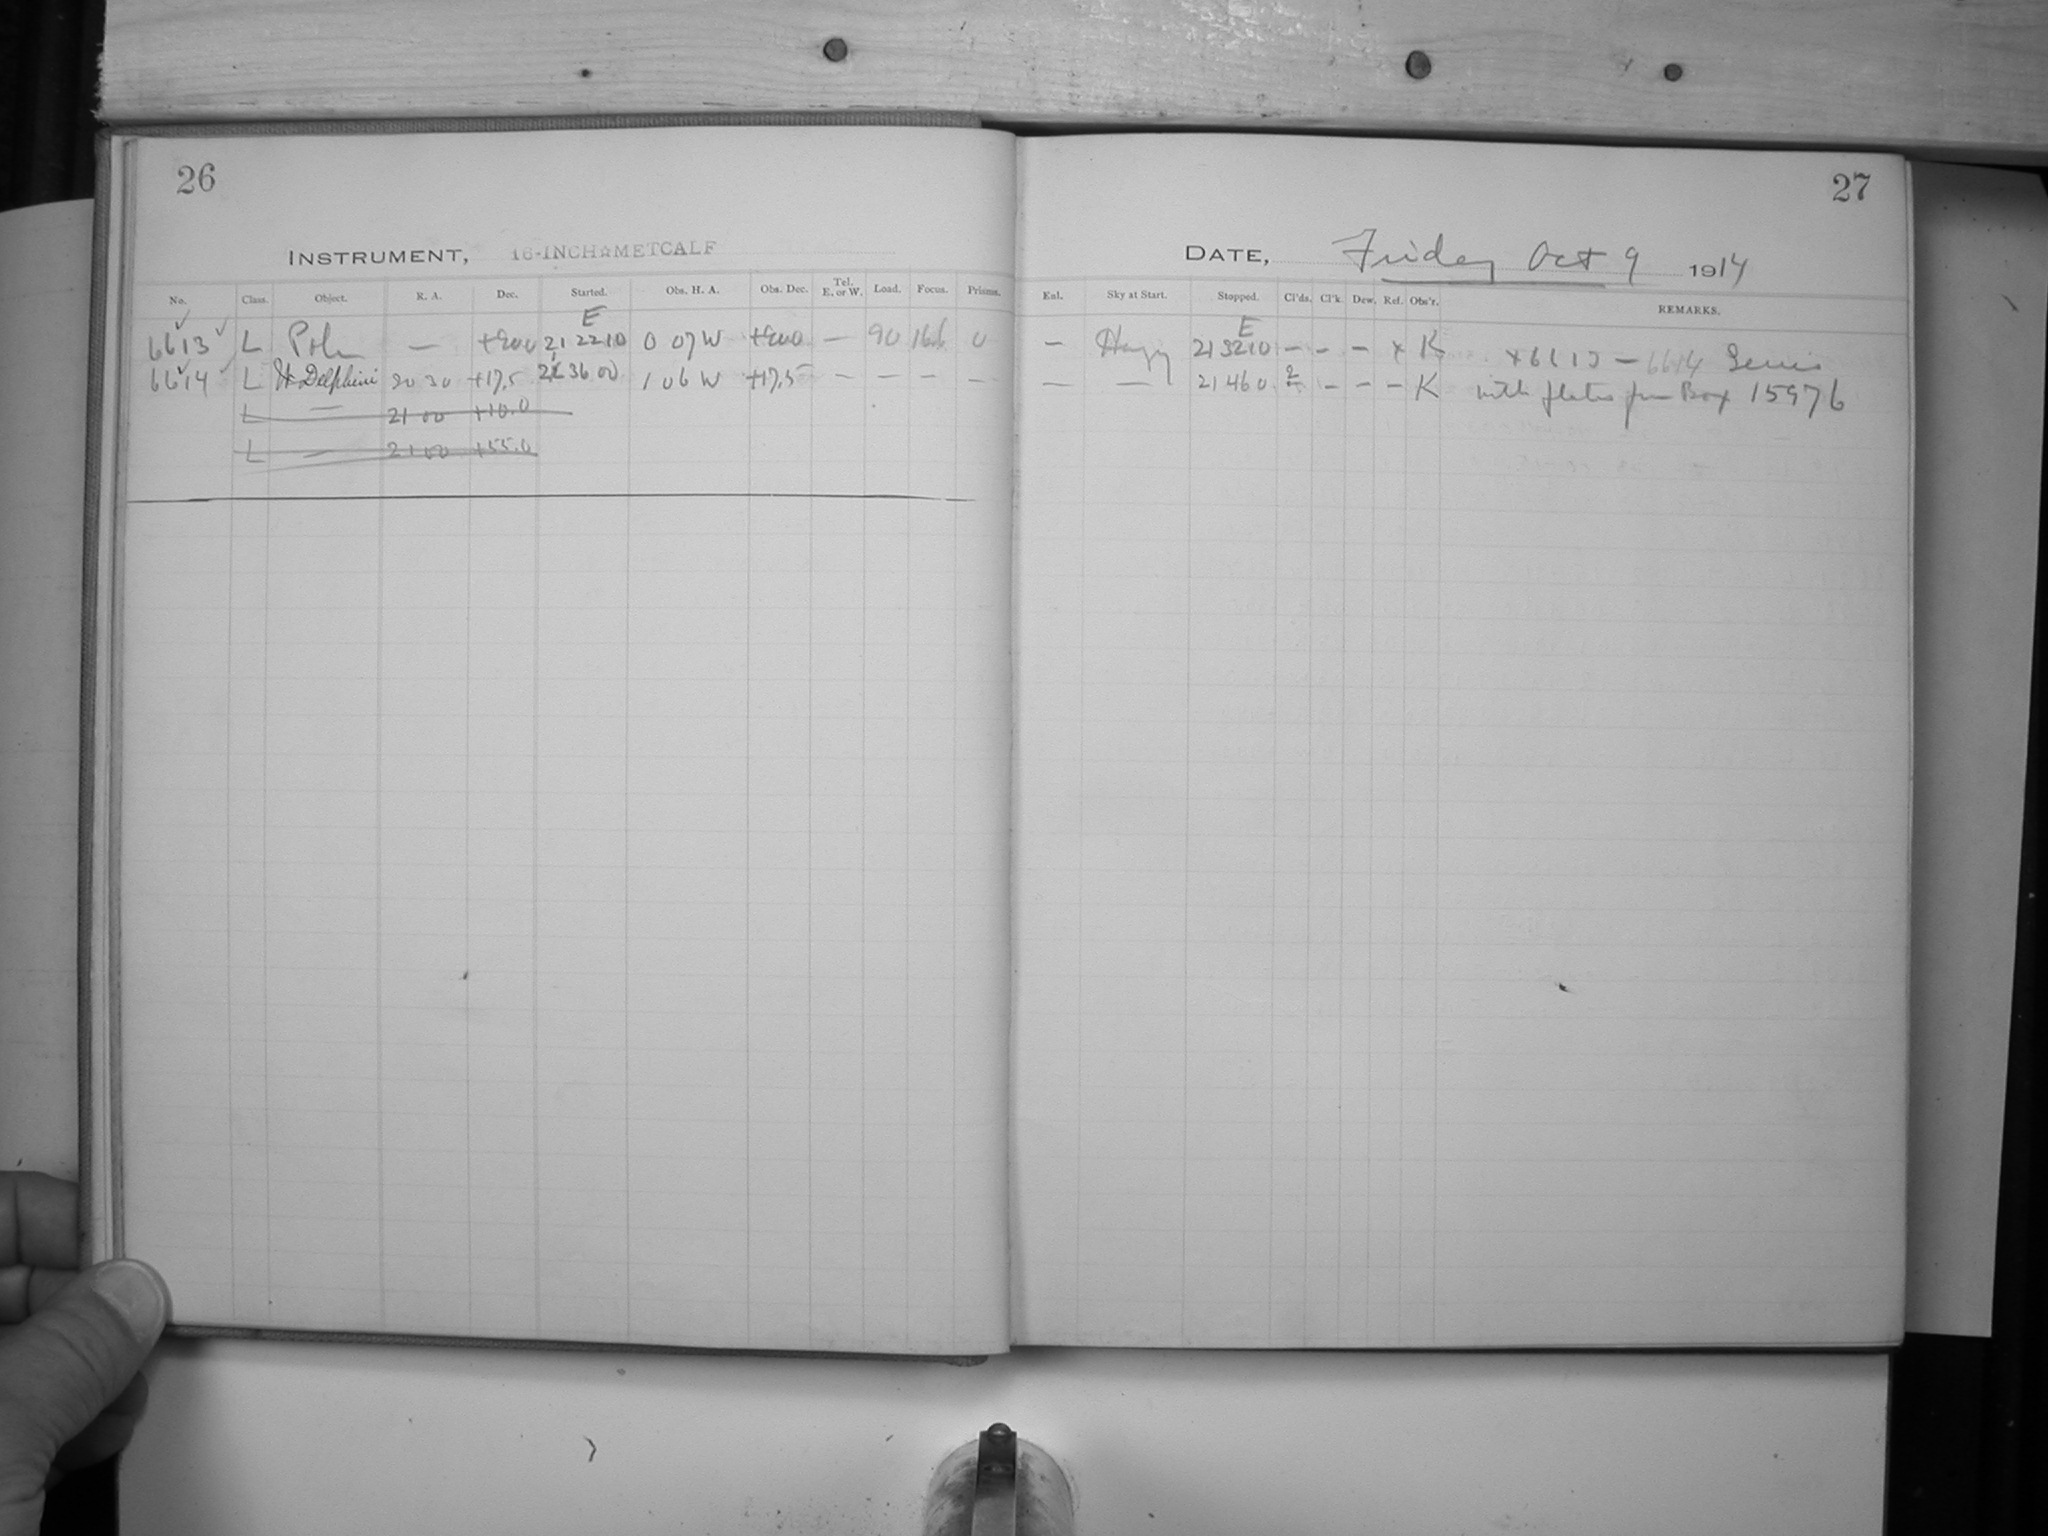 26
INSTRUMENT, 16-INCH☆METCALF
No. Class. Object. R. A. Dec. Started. Obs. H. A. Obs. Dec. Tel. E. or W. Load. Focus. Prisms.
E
6613 L — 21 22 10 0 07 W — 90 166 0
6614 L Delphini 20 30 +17.5 21 36 00 1 06 W +17.5 — — — —
L — 21 00 +10.0
L — 21 00 +55.0
27
DATE, Friday Oct 9 1914
Enl. Sky at Start. Stopped. Cl'ds. Cl'k. Dew. Ref. Obs'r. REMARKS.
E
— Hazy 21 32 10 — — — x K x 6613 — 6614 Series
— — 21 46 0 2 — — — K with plates from Box 15976